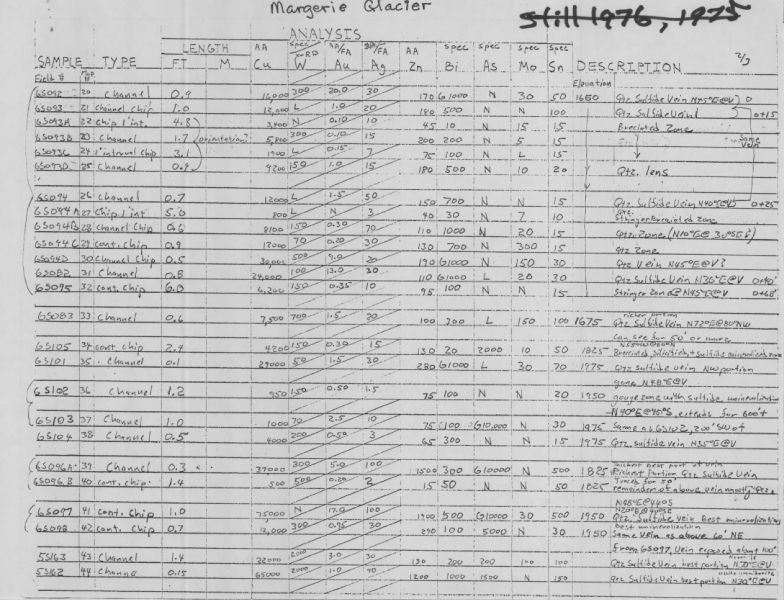 Margerie Glacier
Still 1976, 1975
ANALYSIS
LENGTH AA Spec XRD AA/FA AA/FA AA Spec Spec Spec Spec 2/3
SAMPLE TYPE FT M Cu W Au Ag Zn Bi As Mo Sn DESCRIPTION
Field # Map # Elevation
6S092 20 Channel 0.9 16,000 300 20.0 30 170 G1000 N 30 50 1650 Qtz Sulfide Vein N45°E@V 0
6S093 21 Channel chip 1.0 12,000 L 1.0 20 140 500 N N 100 Qtz Sulfide Vein 0+15
6S093A 22 Chip 1' int. 4.8 3,400 N 0.10 10 45 10 N 15 15 Brecciated Zone
6S093B 23 Channel 1.7 orientation? 5,800 300 0.10 15 200 200 N 5 15 Same Vein
6S093C 24 1' interval chip 3.1 1900 L 0.15 7 75 100 N L 15
6S093D 25 Channel 0.9 9200 150 1.0 15 180 500 N 10 20 Qtz. lens
6S094 26 Channel 0.7 12000 L 1.5 50 150 700 N N 15 Qtz Sulfide Vein N40°E@V 0+25
6S094A 27 Chip 1' int 5.0 800 L N 3 40 30 N 7 10 Qtz. Stringer Brecciated Zone
6S094B 28 Channel chip 0.6 8100 150 0.30 70 110 1000 N 20 15 Qtz. Zone
6S094C 29 cont. chip 0.9 12000 70 0.20 30 130 700 N 300 15 Qtz Zone
6S094D 30 Channel chip 0.5 500 9.0 20 190 G1000 N 150 30 Qtz Vein N45°E@V?
6S082 31 Channel 0.8 24,000 100 13.0 30 110 G1000 L 20 30 Qtz Sulfide Vein N36°E@V 0+40'
6S095 32 cont. chip 6.0 6,200 150 0.35 10 95 100 N N 15 Stringer Zone @ N45°E@V 0+68'
6S083 33 Channel 0.6 7,500 700 1.5 20 100 300 L 150 100 1675 richer portion Qtz Sulfide Vein N72°E@80°NW
can see for 50' or more
6S105 34 cont chip 2.4 4200 150 0.30 15 130 20 2000 10 50 1825 Brecciated, silicified + sulfide mineralized zone
6S101 35 Channel 0.1 29000 50 1.5 30 280 G1000 L 30 70 1975 Qtz sulfide vein NW portion
gouge N48°E@V
6S102 36 Channel 1.2 950 150 0.50 1.5 75 100 N N 20 1950 gouge zone with sulfide mineralization
N40°E@45°S, extends for 600'±
6S103 37 Channel 1.0 1000 70 2.5 10 75 100 G10,000 N 30 1975 Same as 6S102, 200' SW of
6S104 38 Channel 0.5 4000 200 0.50 3 65 300 N N 15 1975 Qtz, sulfide vein N35°E@V
6S096A 39 Channel 0.3 37000 300 5.0 100 1500 300 G10000 N 500 1825 richest best part of vein Richest Portion, Qtz Sulfide Vein
Traced for 50'
6S096B 40 cont. chip 1.4 500 500 0.20 2 15 50 N N 50 1825 remainder of above vein mostly Qtz
N48°E@44°S
6S097 41 cont. chip 1.0 75000 N 17.0 100 1400 500 G10000 30 500 1950 Qtz. Sulfide vein best mineralization
best mineralization
6S098 42 cont. chip 0.7 12,000 300 0.95 30 290 100 5000 N 30 1950 Same Vein as above 60' NE
from 6S097, Vein exposed about 100'
5S163 43 Channel 1.4 32000 2000 3.0 30 130 200 200 100 100 Qtz Sulfide Vein best portion N70°E@V
5S162 44 Channel 0.15 65000 2000 1.0 70 1200 1000 1500 N 150 qtz Sulfide vein best portion N30°E@V